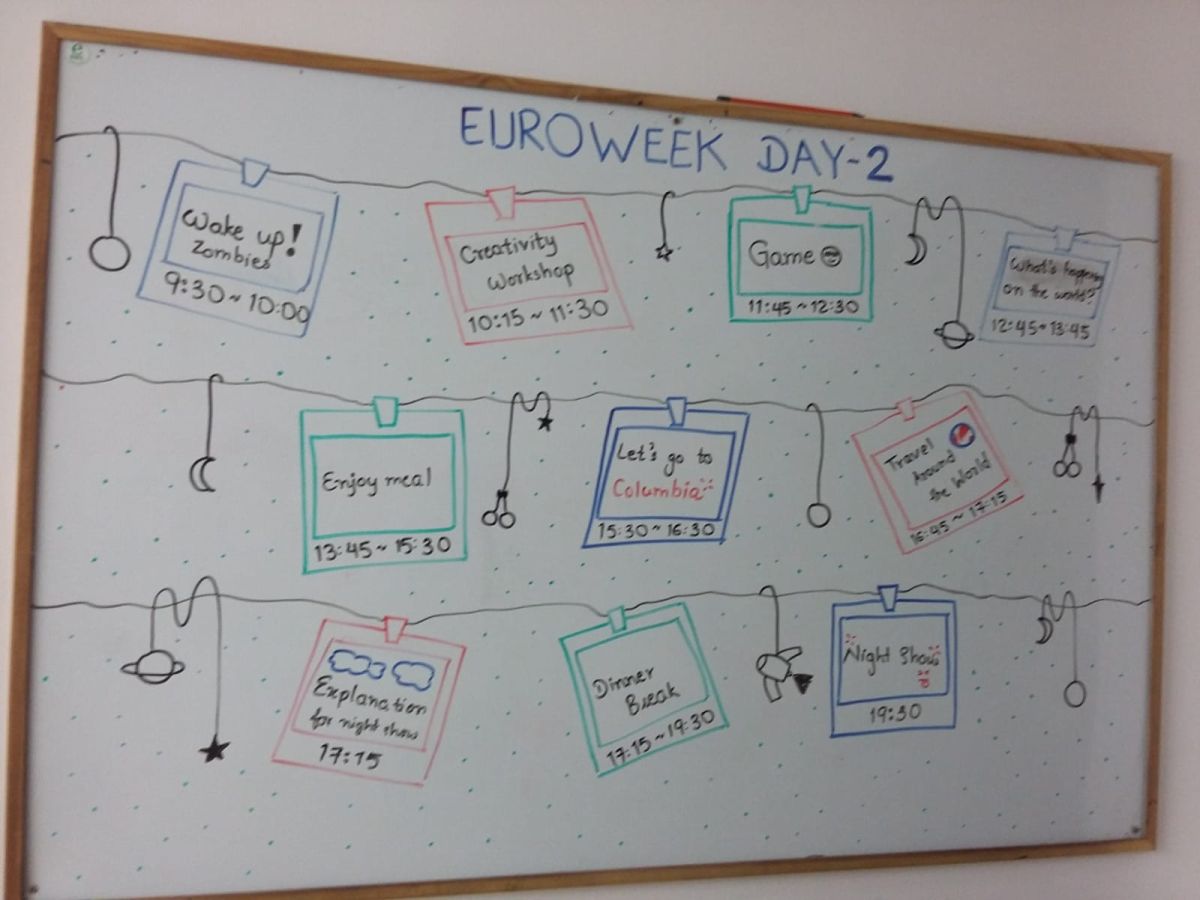 EUROWEEK DAY-2
Wake up!
Zombies
9:30~10:00
Creativity
Workshop
10:15 ~ 11:30
Game
11:45 ~ 12:30
What's happening
on the world?
12:45~13:45
Enjoy meal
13:45~15:30
Let's go to
Columbia
15:30~16:30
Travel
Around
the World
16:45 ~ 17:15
Explanation
for night show
17:15
Dinner
Break
17:15~19:30
Night Show
19:30